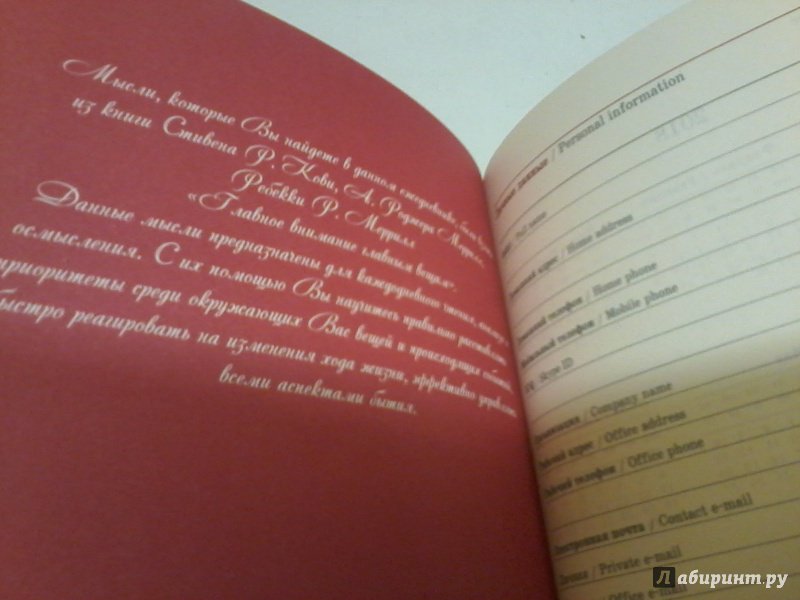 Мысли, которые Вы найдете в данном ежедневнике, были
из книги Стивена Р. Кови, А. Роджера Меррилл,
Ребекки Р. Меррилл
«Главное внимание главным вещам».
Данные мысли предназначены для каждодневного чтения,
осмысления. С их помощью Вы научитесь правильно
приоритеты среди окружающих Вас вещей и происходящих
быстро реагировать на изменения хода жизни, эффективно
всеми аспектами бытия.
данные / Personal information
/ Full name
адрес / Home address
телефон / Home phone
Мобильный телефон / Mobile phone
/ Home ID
Организация / Company name
Рабочий адрес / Office address
Рабочий телефон / Office phone
почта / Contact e-mail
/ Private e-mail
/ Office e-mail
Лабиринт.ру